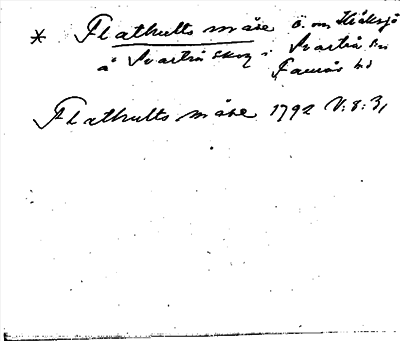 * Flathults måse ö. om Stråksjö
å Svartrå skog i Svartrå sn
Faurås hd
Flathults måse 1792 V:8:31